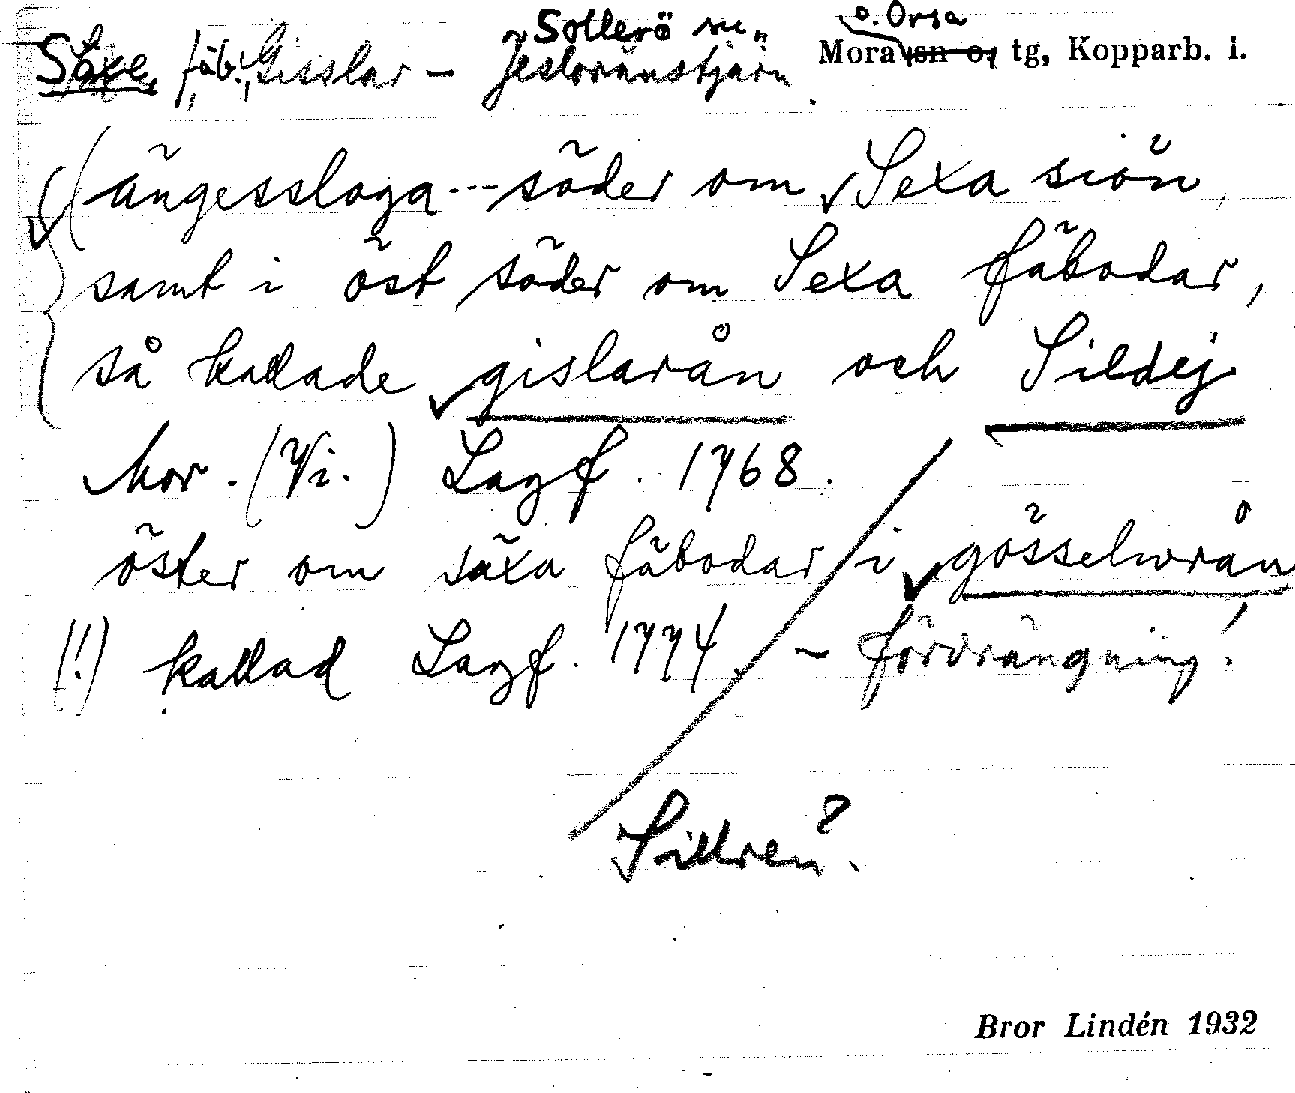 Sollerö sn
o. Orsa
Säxe, fäb.; Gisslar – Jeslovänstjärn Mora sn o. tg, Kopparb. l.
(ängessloga --- söder om Sexa siön,
samt i öst söder om Sexa fäbodar,
så kallade gislarån och Sildej
Mor. (Vi.) Lagf. 1768.
öster om säxa fäbodar i gösselwrån
(!) kallad Lagf. 1774. – förvrängning!
Sillren?
Bror Lindén 1932